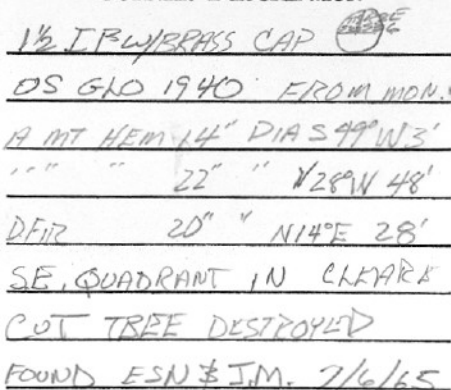 1½ IP W/BRASS CAP
OS GLO 1940 FROM MON.
A MT HEM 14" DIA S49°W3'
" " " " 22" " N28°W 48'
D.FIR 20" " N14°E 28'
SE. QUADRANT IN CLEAR &
CUT TREE DESTROYED
FOUND ESN & J.M. 7/6/65